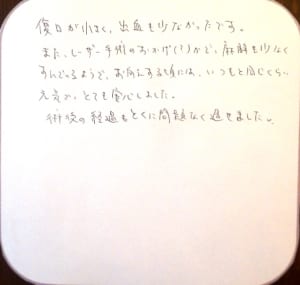 傷口が小さく、出血も少なかったです。
また、レーザー手術のおかげ(?)かで、麻酔も少なく
すんでいるようで、お迎えする時には、いつもと同じくらい
元気で、とても安心しました。
術後の経過もとくに問題なく過せました。